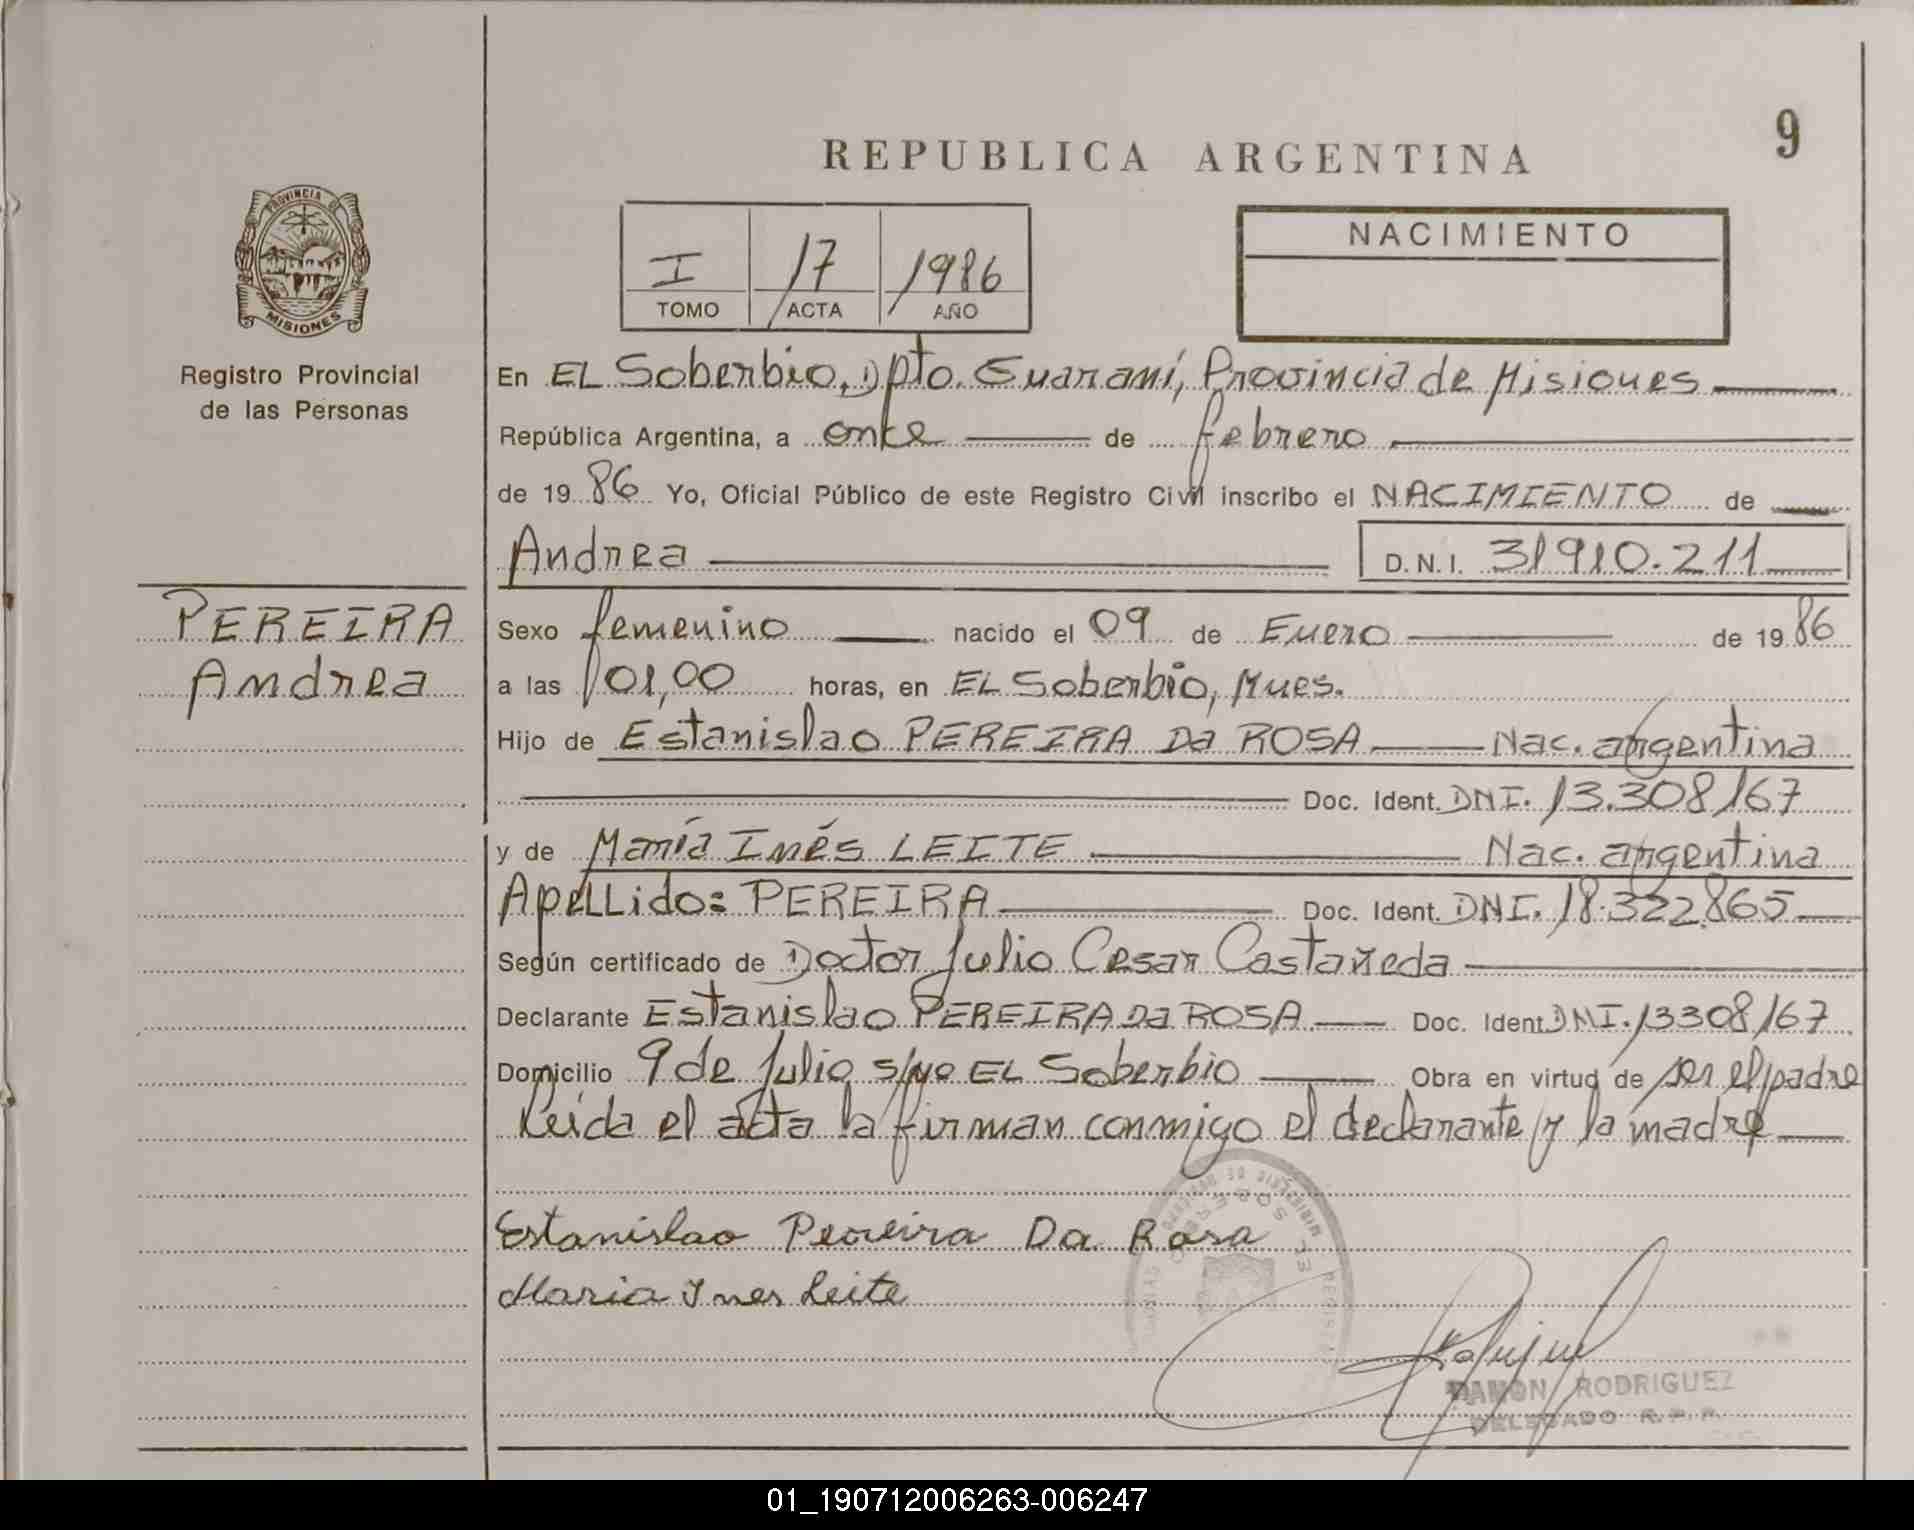 9
REPUBLICA ARGENTINA
PROVINCIA DE
MISIONES
Registro Provincial
de las Personas
I 17 1986
TOMO ACTA AÑO
NACIMIENTO
En EL Soberbio, Dpto. Guaraní, Provincia de Misiones
República Argentina, a once de febrero
de 19 86 Yo, Oficial Público de este Registro Civil inscribo el NACIMIENTO de
Andrea D.N.I. 31910.211
PEREIRA
Andrea
Sexo femenino nacido el 09 de Enero de 19 86
a las 01,00 horas, en EL Soberbio, Mnes.
Hijo de Estanislao PEREIRA Da ROSA Nac. argentina
Doc. Ident. DNI. 13.308167
y de María Inés LEITE Nac. argentina
Apellido: PEREIRA Doc. Ident. DNI. 18.322.865
Según certificado de Doctor Julio Cesar Castañeda
Declarante Estanislao PEREIRA Da ROSA Doc. Ident DNI. 13308167
Domicilio 9 de Julio s/nº EL Soberbio Obra en virtud de ser el padre
Leída el acta la firman conmigo el declarante y la madre
Estanislao Pereira Da Rosa
Maria Ynes Leite
RAMON RODRIGUEZ
DELEGADO R.P.P.
01_190712006263-006247